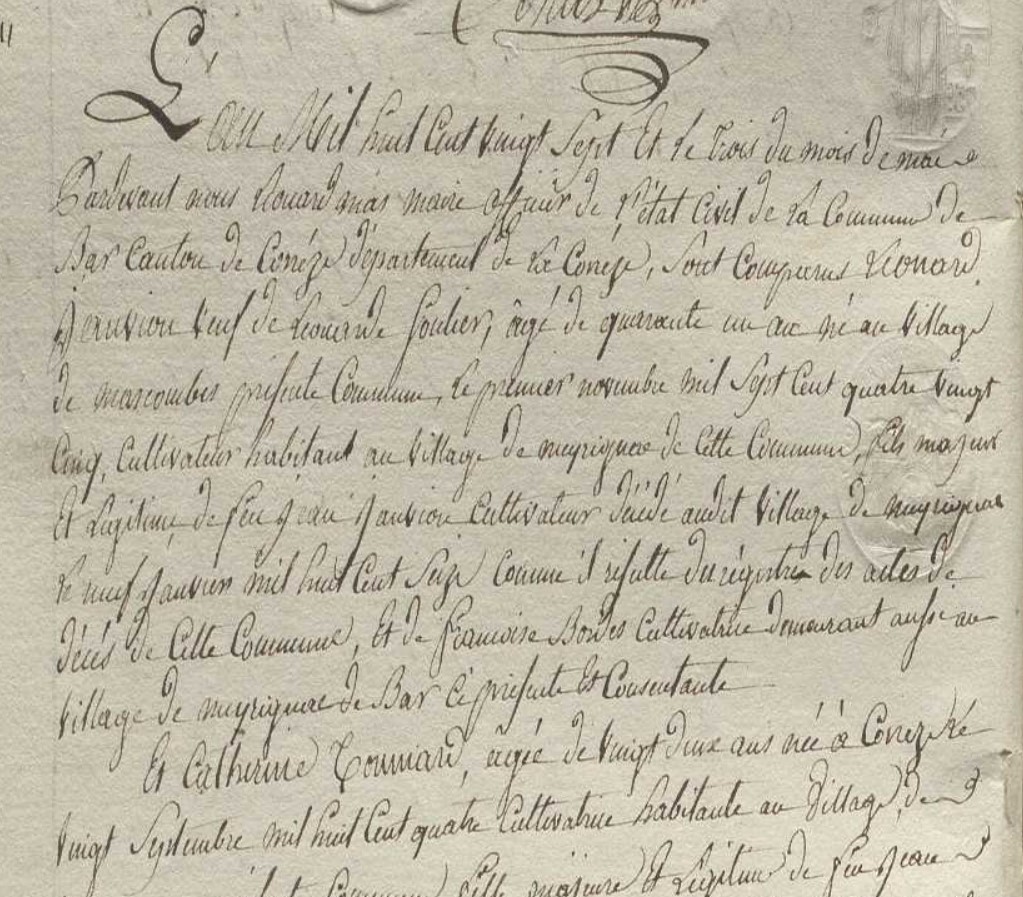 L'an Mil huit Cent vingt Sept Et le trois du mois de mai
Pardevant nous Léonard mas maire officier de l'état Civil de la Commune de
Bar Canton de Corrèze département de la Corrèze, Sont Comparus Léonard
Janvion veuf de Léonarde Soulier, âgé de quarante un an né au village
de mascombes présente Commune, le premier novembre mil Sept Cent quatre vingt
Cinq, Cultivateur habitant au village de meyrignac de Cette Commune, fils majeur
Et légitime, de feu Jean Janvion Cultivateur décédé audit village de meyrignac
le neuf Janvier mil huit Cent Seize Comme il résulte du régistre des actes de
décès de Cette Commune, Et de francoise Bordes Cultivatrice demeurant aussi au
village de meyrignac de Bar Ci présente Et Consentante
Et Catherine, âgée de vingt deux ans née à Corrèze le
vingt Septembre mil huit Cent quatre Cultivatrice habitante au village, de
Commune fille majeure Et légitime de feu Jean